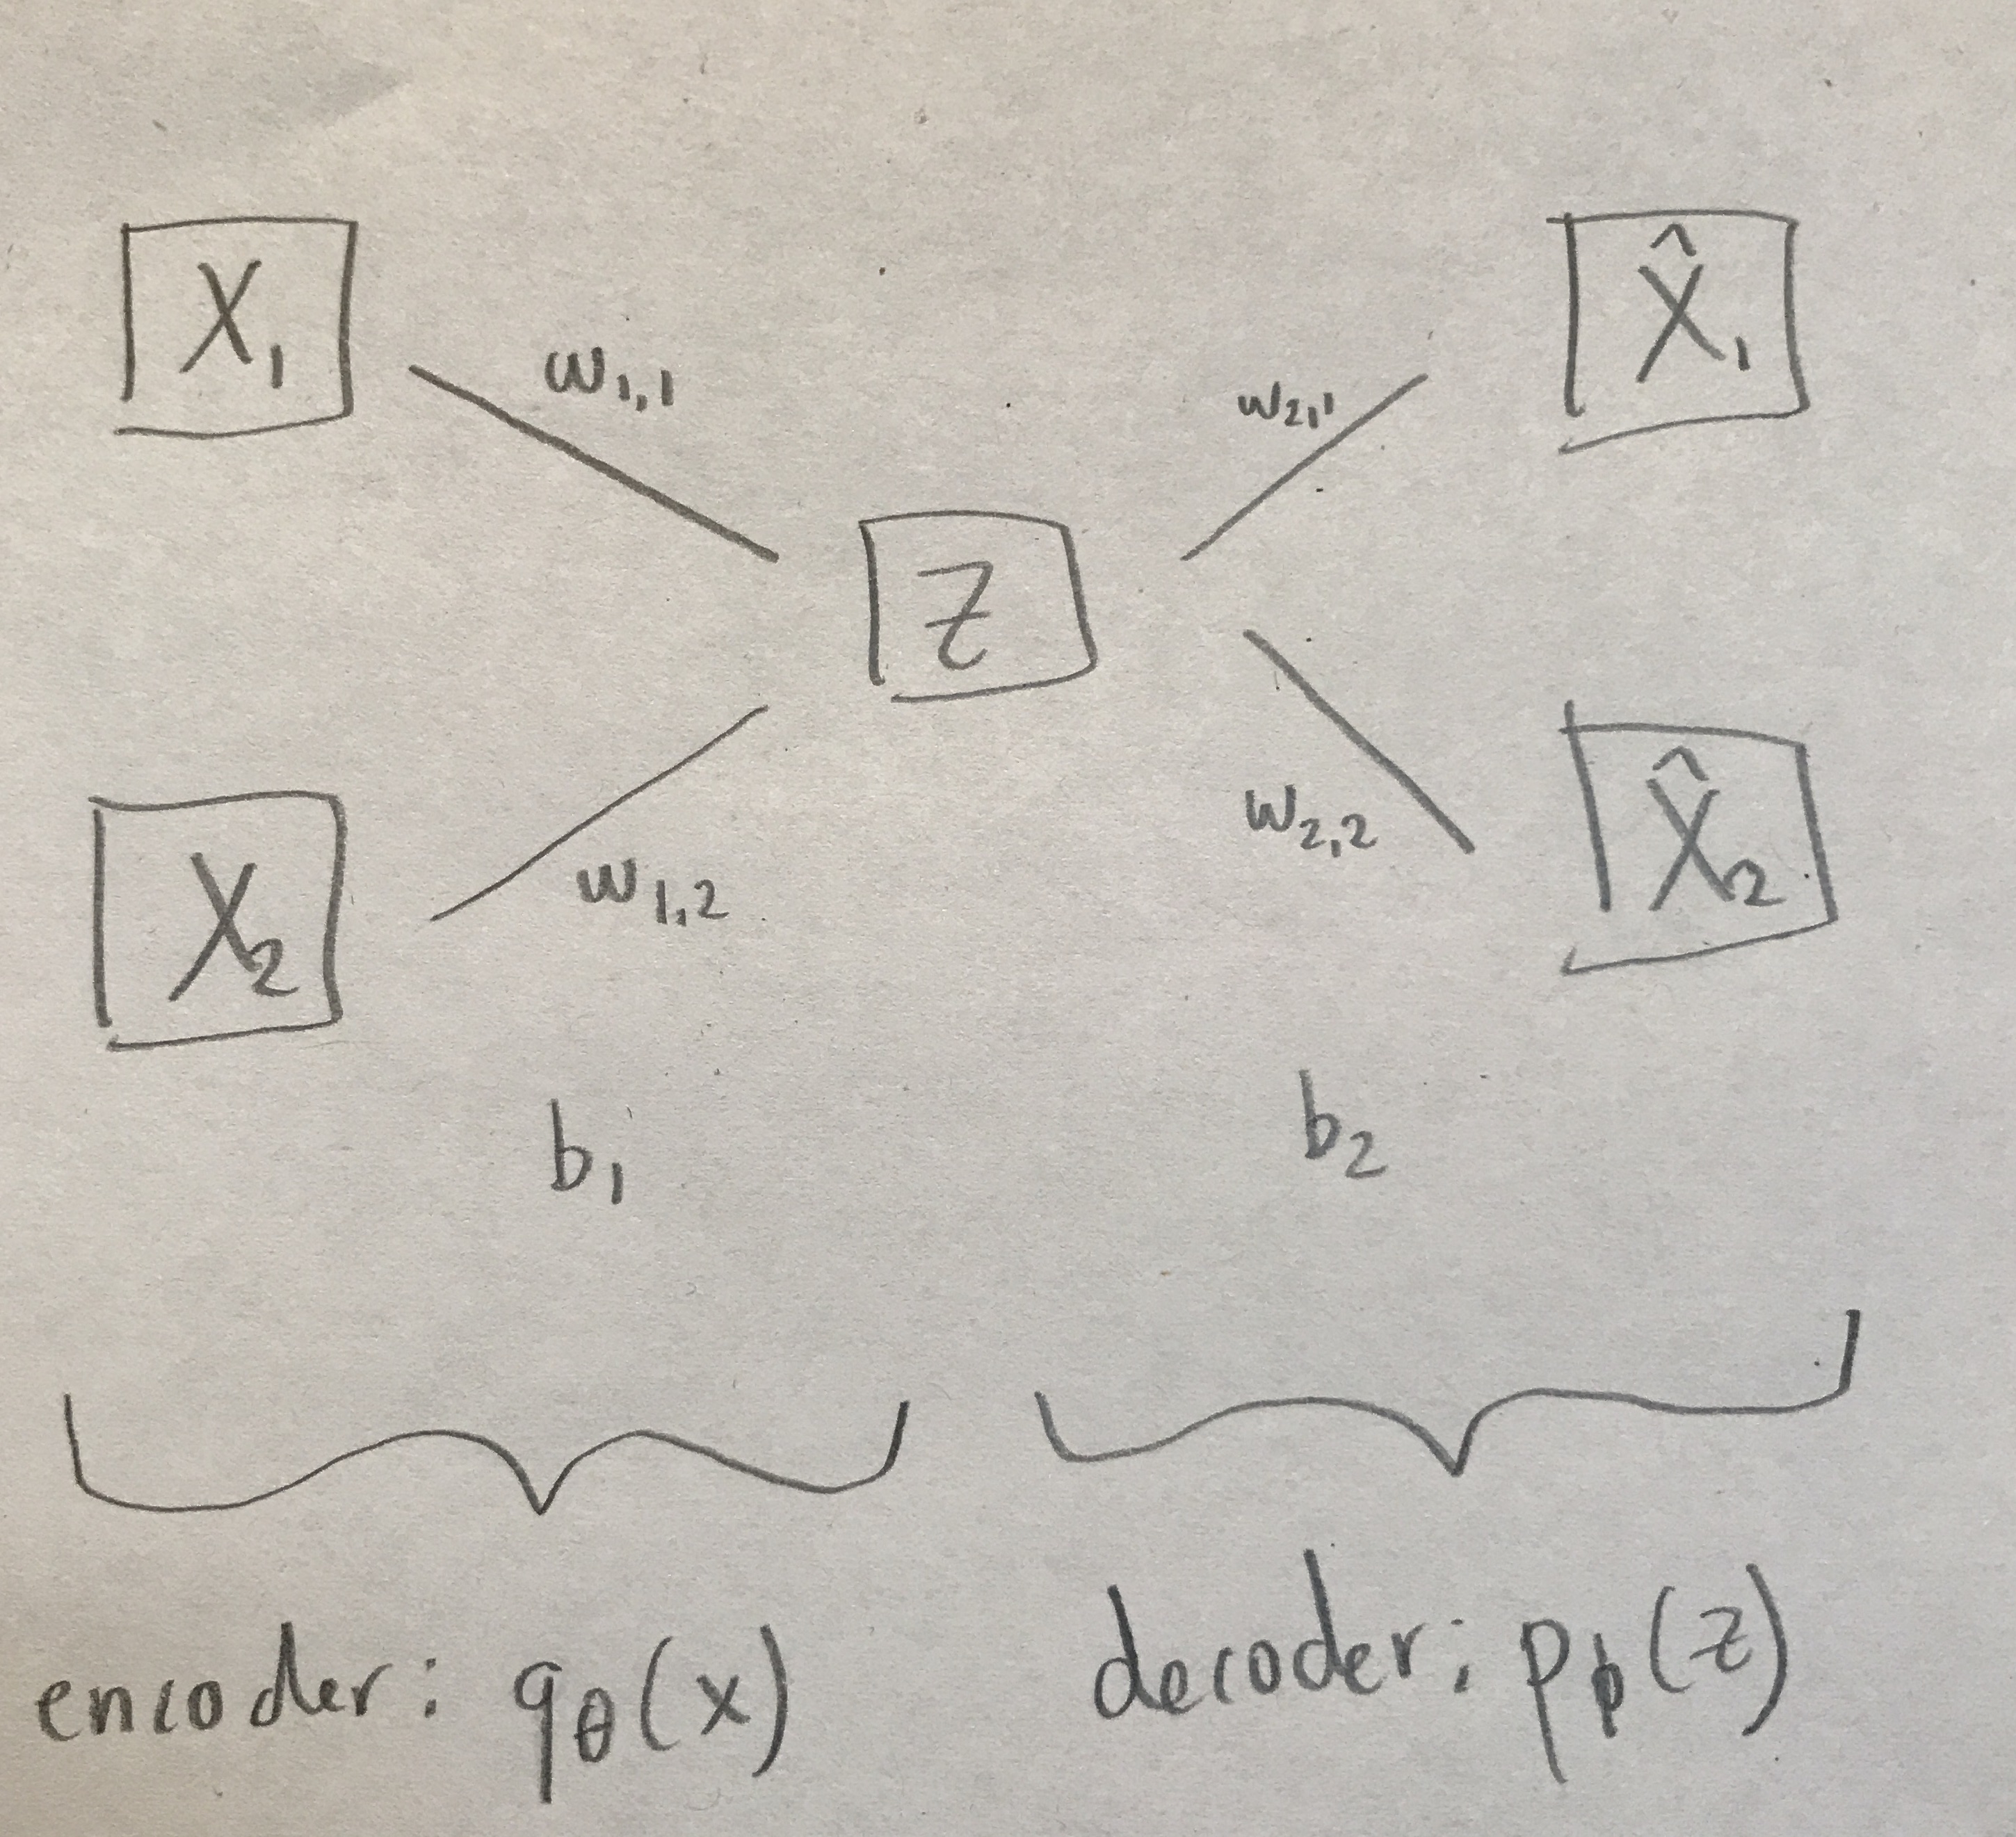 X₁
X̂₁
w₁,₁
w₂,₁
Z
X₂
w₁,₂
w₂,₂
X̂₂
b₁
b₂
encoder: q_θ(x)
decoder: p_ϕ(z)